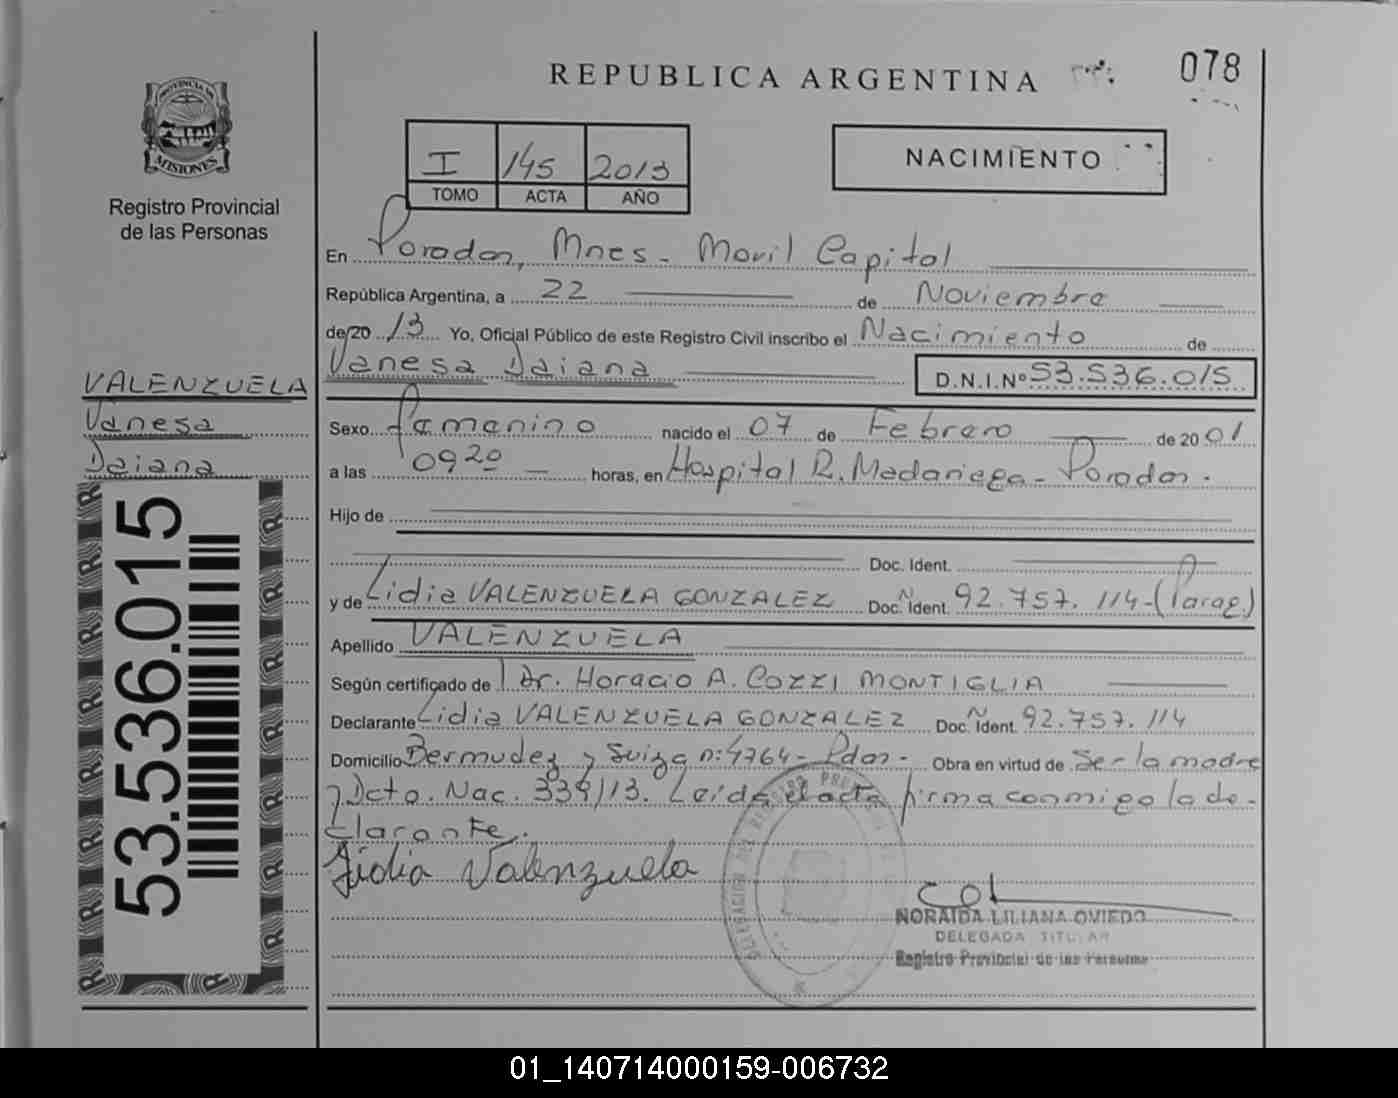 REPUBLICA ARGENTINA
078
PROVINCIA DE
MISIONES
Registro Provincial
de las Personas
I 145 2013
TOMO ACTA AÑO
NACIMIENTO
En Posadas, Mnes - Movil Capital
República Argentina, a 22 de Noviembre
de 20 13 Yo, Oficial Público de este Registro Civil inscribo el Nacimiento de
Vanesa Daiana D.N.I.Nº 53.536.015
VALENZUELA
Vanesa
Daiana
53.536.015
Sexo Femenino nacido el 07 de Febrero de 20 01
a las 0920 horas, en Hospital R. Madariaga - Posadas.
Hijo de
Doc. Ident.
y de Lidia VALENZUELA GONZALEZ Doc. Ident. Nº 92.757.114-(Parag.)
Apellido VALENZUELA
Según certificado de Dr. Horacio A. COZZI MONTIGLIA
Declarante Lidia VALENZUELA GONZALEZ Doc. Ident. Nº 92.757.114
Domicilio Bermudez y Suiza n: 4764- Pdas - Obra en virtud de Ser la madre
y Dcto. Nac. 339/13. Leida el acta firma conmigo la de-
clarante.
Lidia Valenzuela
NORAIDA LILIANA OVIEDO
DELEGADA TITULAR
Registro Provincial de las Personas
01_140714000159-006732